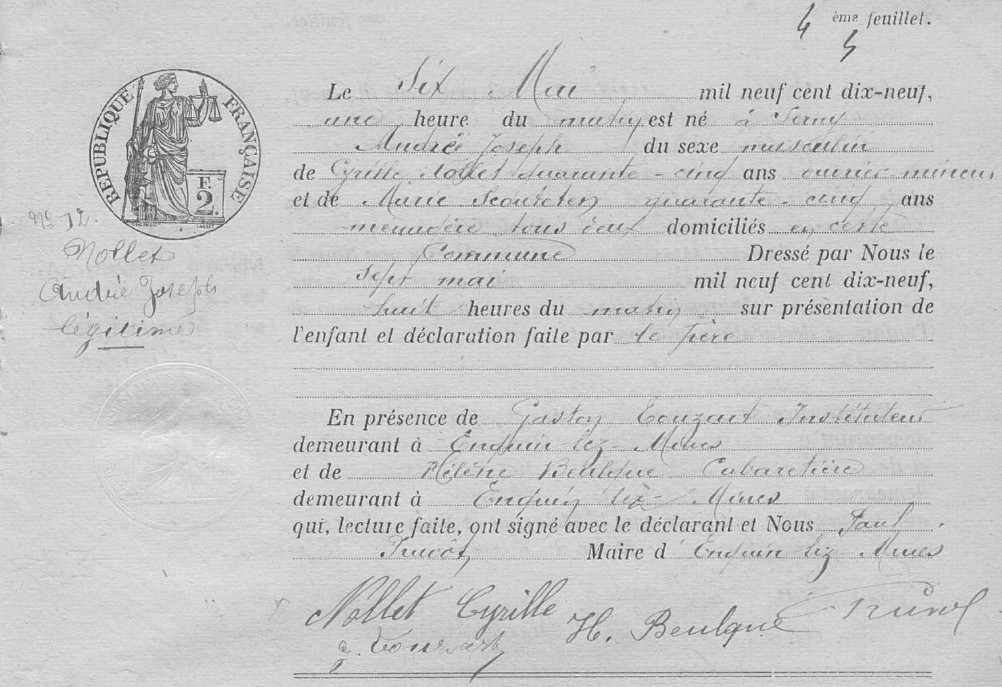 4 ème feuillet.
4
RÉPUBLIQUE FRANÇAISE
F
2
Le Six Mai mil neuf cent dix-neuf,
une heure du matin est né à Serny
André Joseph du sexe masculin
de Cyrille Nollet quarante-cinq ans ouvrier mineur
et de Marie quarante-cinq ans
ménagère tous deux domiciliés en cette
Commune Dressé par Nous le
sept mai mil neuf cent dix-neuf,
huit heures du matin sur présentation de
l'enfant et déclaration faite par le père
No 12.
Nollet
André Joseph
légitime
En présence de Gaston Touzart Instituteur
demeurant à Enquin-lez-Mines
et de Hélène Beulque Cabaretière
demeurant à Enquin lez-Mines
qui, lecture faite, ont signé avec le déclarant et Nous Paul
Maire d'Enquin lez Mines
Nollet Cyrille H. Beulque
G. Touzart